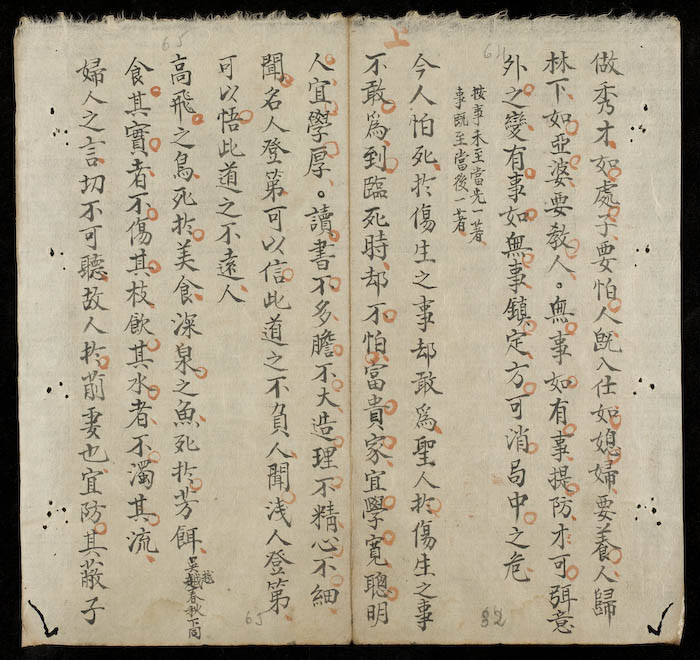 做秀才如處子要怕人既入仕如媳婦要養人歸
林下如亞婆要敎人。無事如有事提防才可弭意
外之變有事如無事鎮定方可消局中之危
按事未至當先一著
事既至當後一著
今人怕死於傷生之事却敢爲聖人於傷生之事
不敢爲到臨死時却不怕富貴家宜學寬聰明
人宜學厚。讀書不多膽不大造理不精心不細
聞名人登第可以信此道之不負人聞浅人登第
可以悟此道之不遠人
高飛之鳥死於美食深泉之魚死於芳餌
吳越春秋下同
越
食其實者不傷其枝飲其水者不濁其流
婦人之言切不可聽故人於前妻也宜防其蔽子
64
65
65